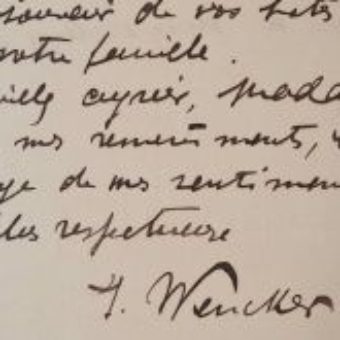 souvenir de vos hôtes
votre famille.
agréer, Mada
mes remerciements,
de mes sentiments
respectueux
J. Wencker